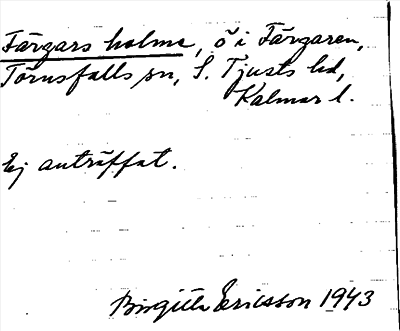 Färgars holme, ö i Färgaren,
Törnsfalls sn, S. Tjusts hd,
Kalmar l.
Ej anträffat.
Birgitta Ericsson 1943